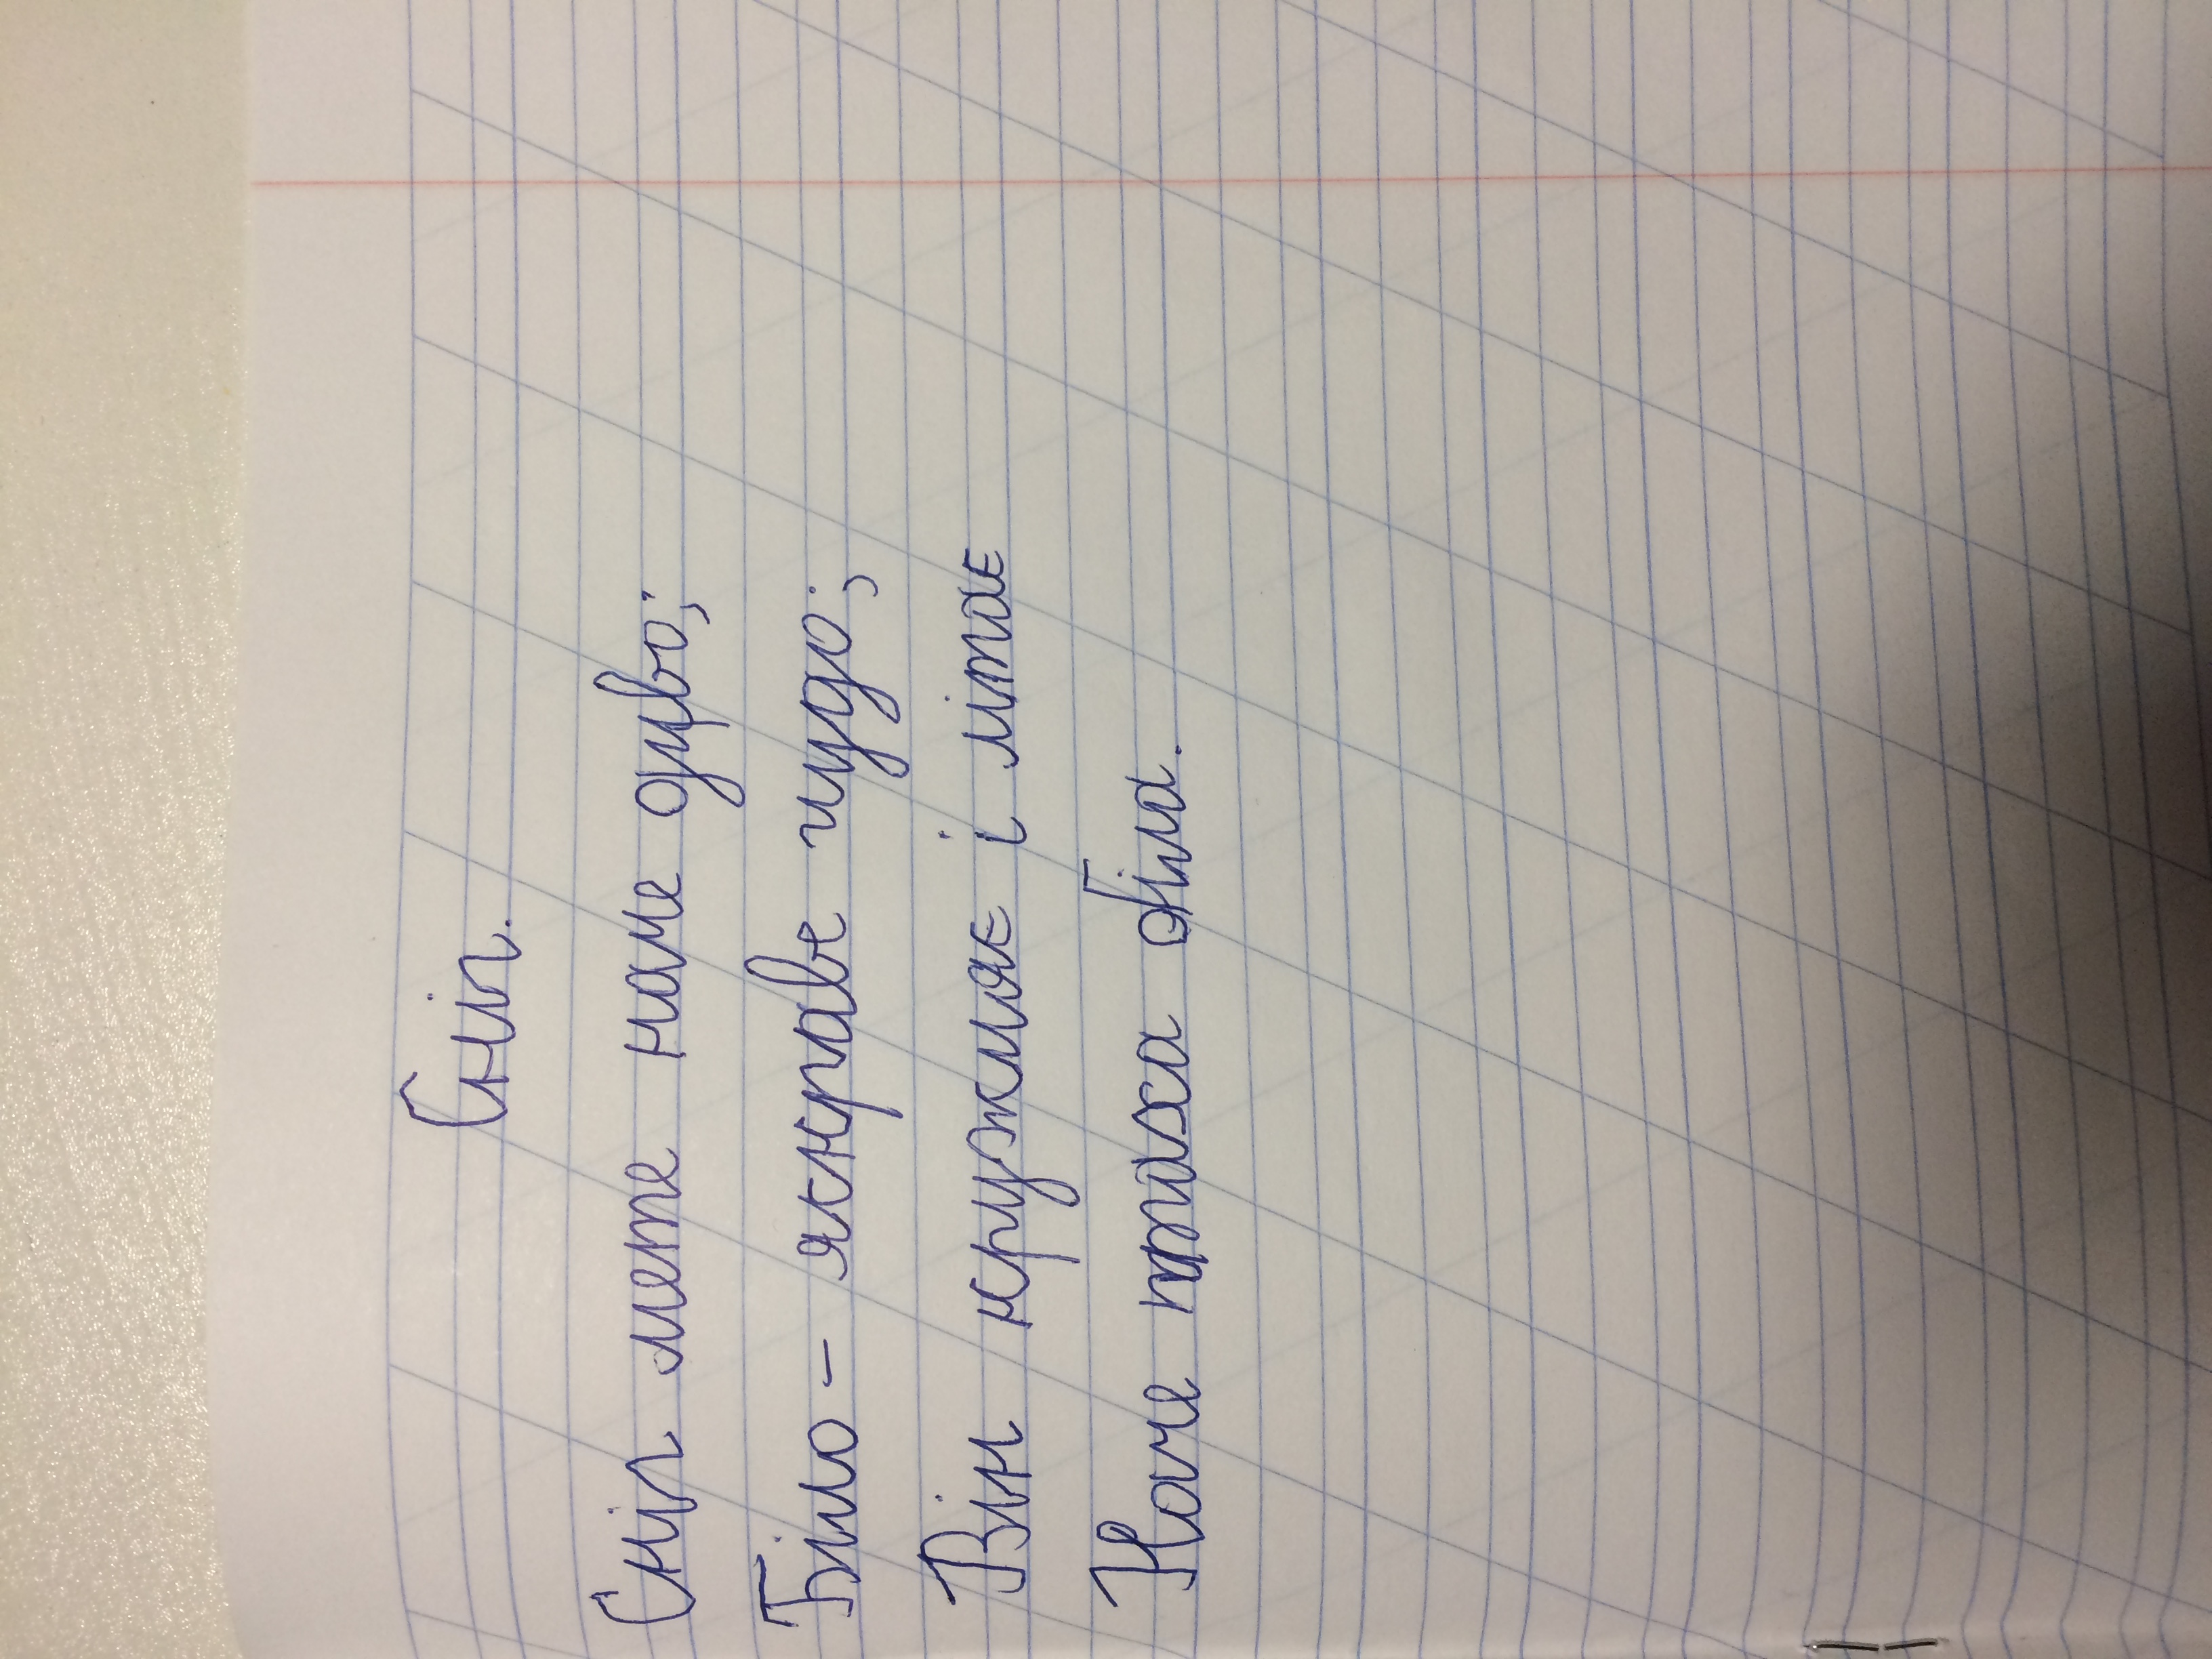 Сніг.
Сніг мете наче диво;
Біло - яскраве чудо;
Він кружляє і літає
Наче птаха біла.